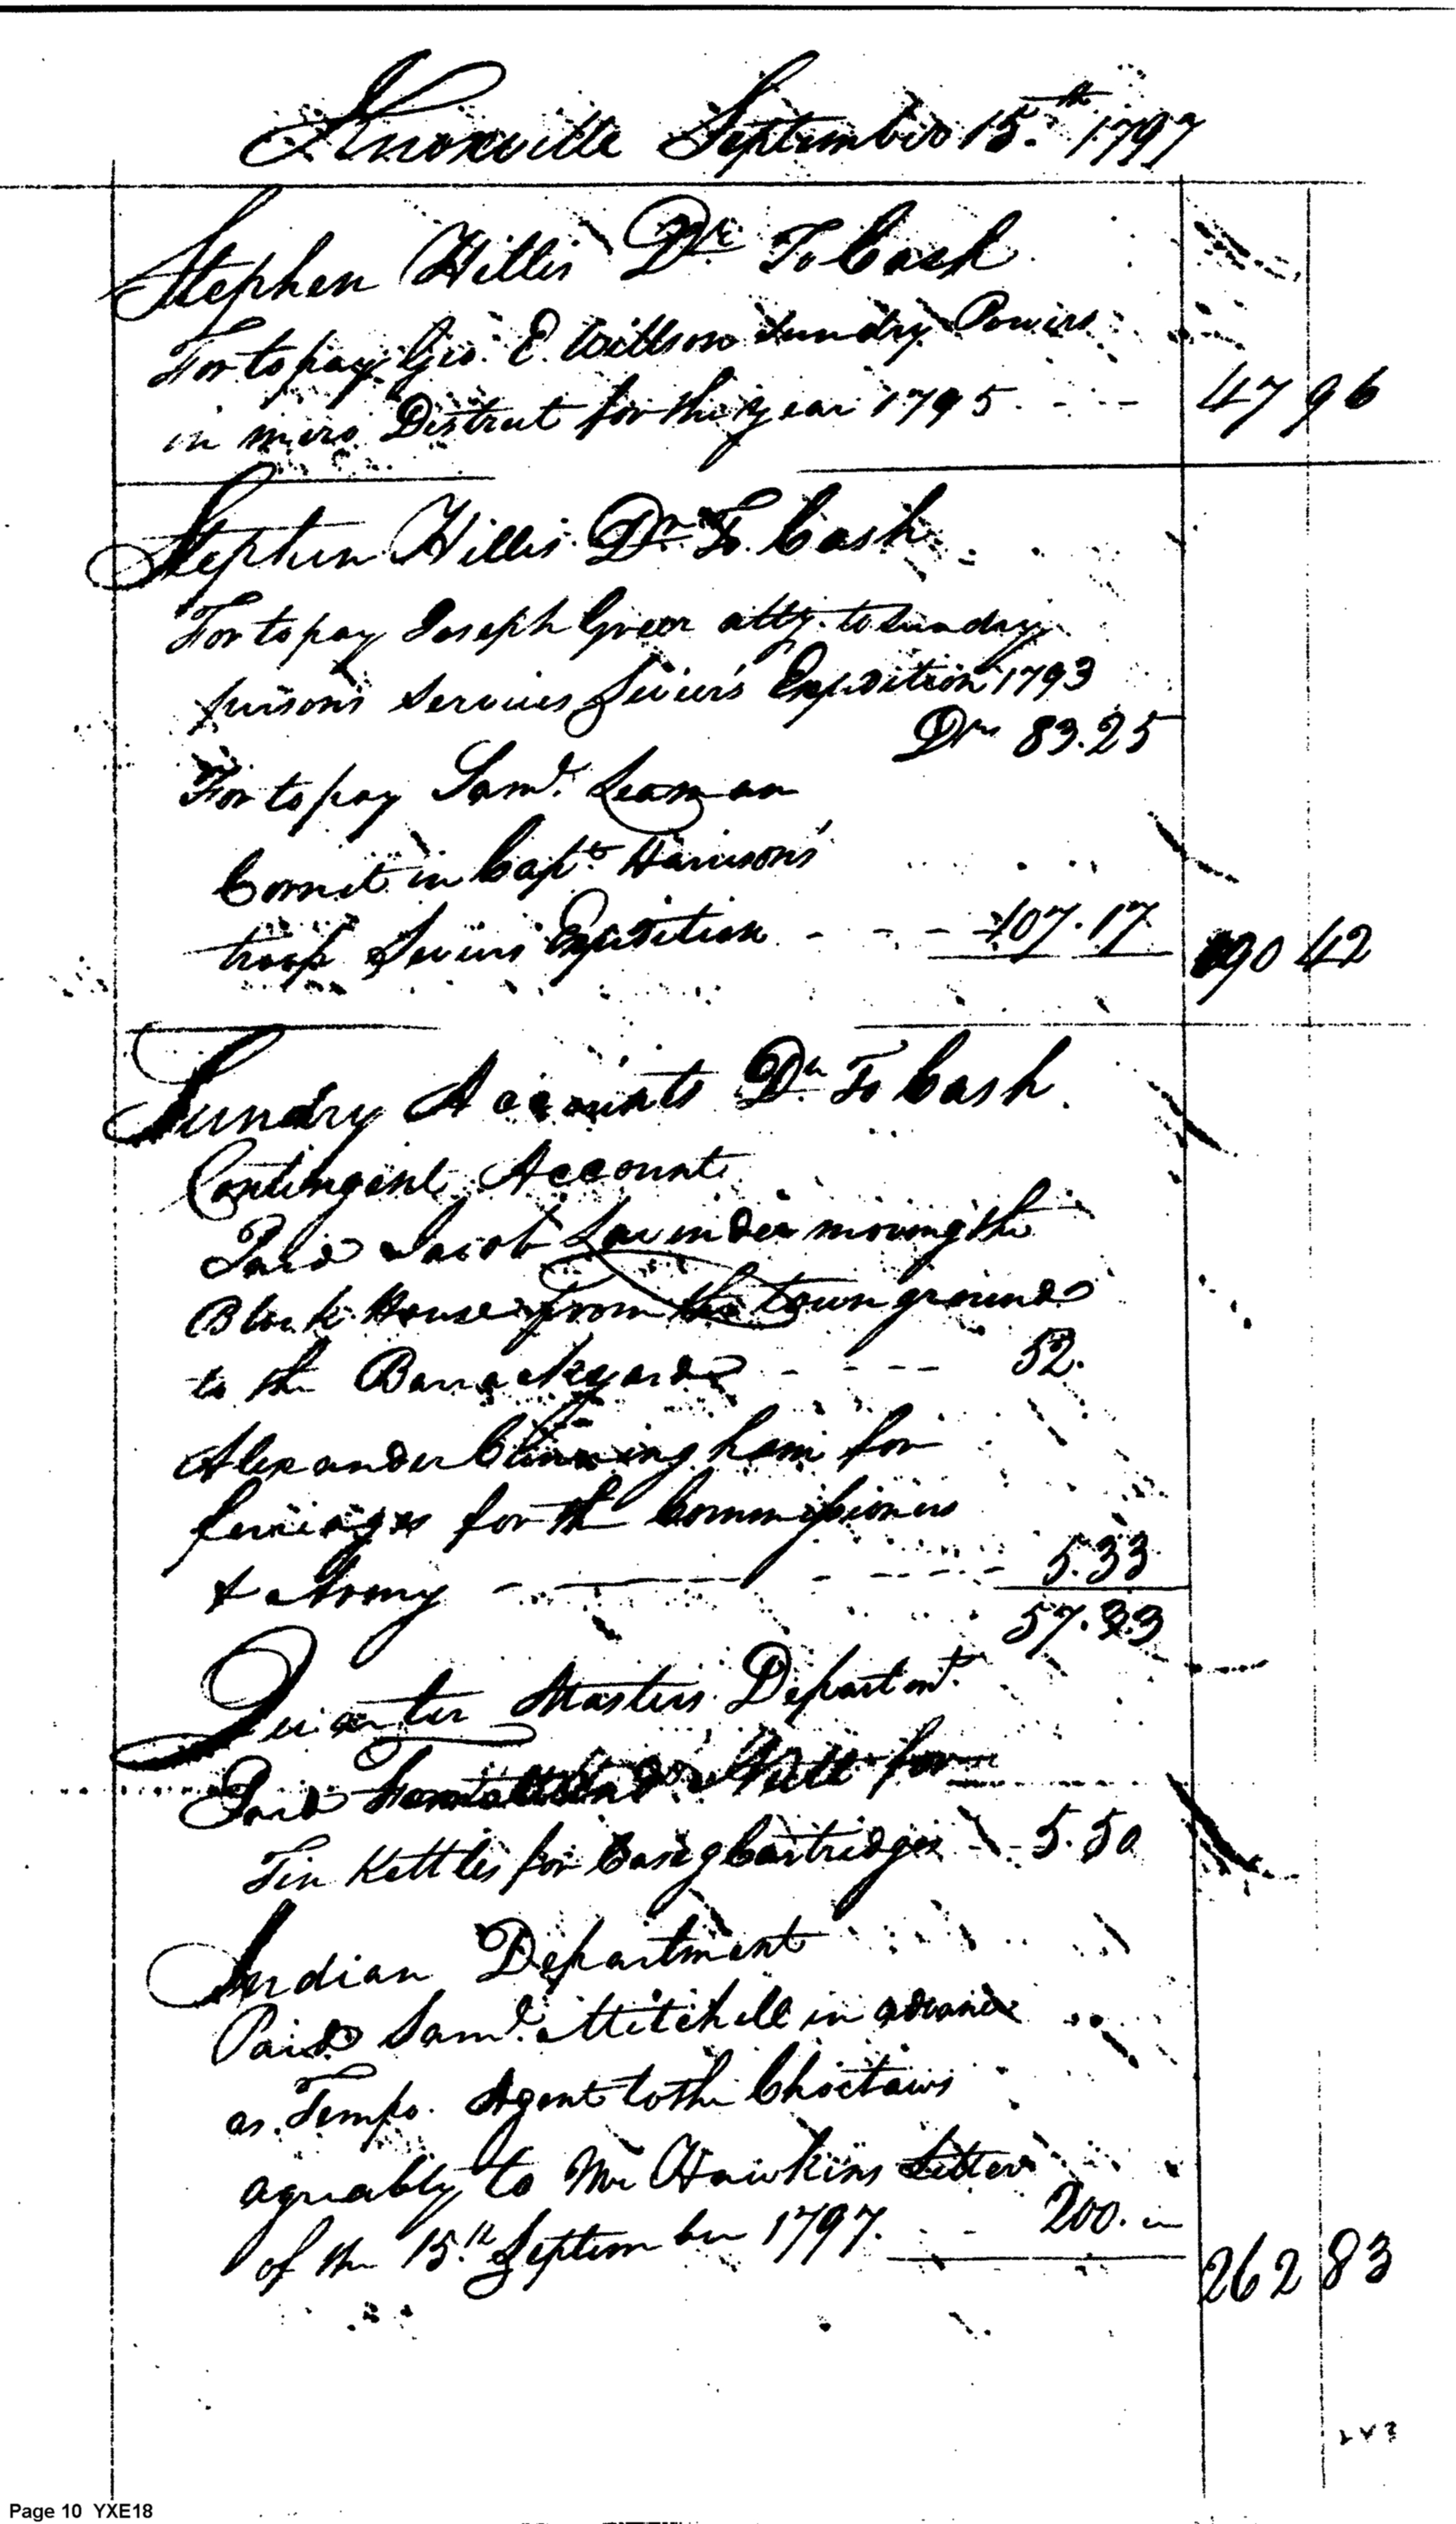 Knoxville September 15.th 1797
Stephen Hillis Dr. To Cash
For to pay Geo. E. Willson Sundry Powers
in mero District for the year 1795. - - - 47 96
Stephen Hillis Dr. To Cash
For to pay Joseph Greer atty. to Sundry
persons services Seviers Expedition 1793
Drs 83.25
For to pay Saml. Leaman
Cornet in Capts. Harrison's
troop Seviers Expedition - - - - 107.17 190 42
Sundry Accounts Dr. To Cash
Contingent Account
Paid Jacob Lavender moving the
Block House from the town ground
to the Barrackyard - - - - 52.
Alexander Cunningham for
ferriages for the Commissioners
& Army - - - - 5.33
57.33
Quarter Masters Departmt.
Paid for
Tin Kettles for Caseg Cartridges - - 5.50
Indian Department
Paid Saml. Mitchell in advance
as Tempo. Agent to the Choctaws
agreably to Mr Hawkins Letter
of the 15.th September 1797. - - 200. 262 83
Page 10 YXE18